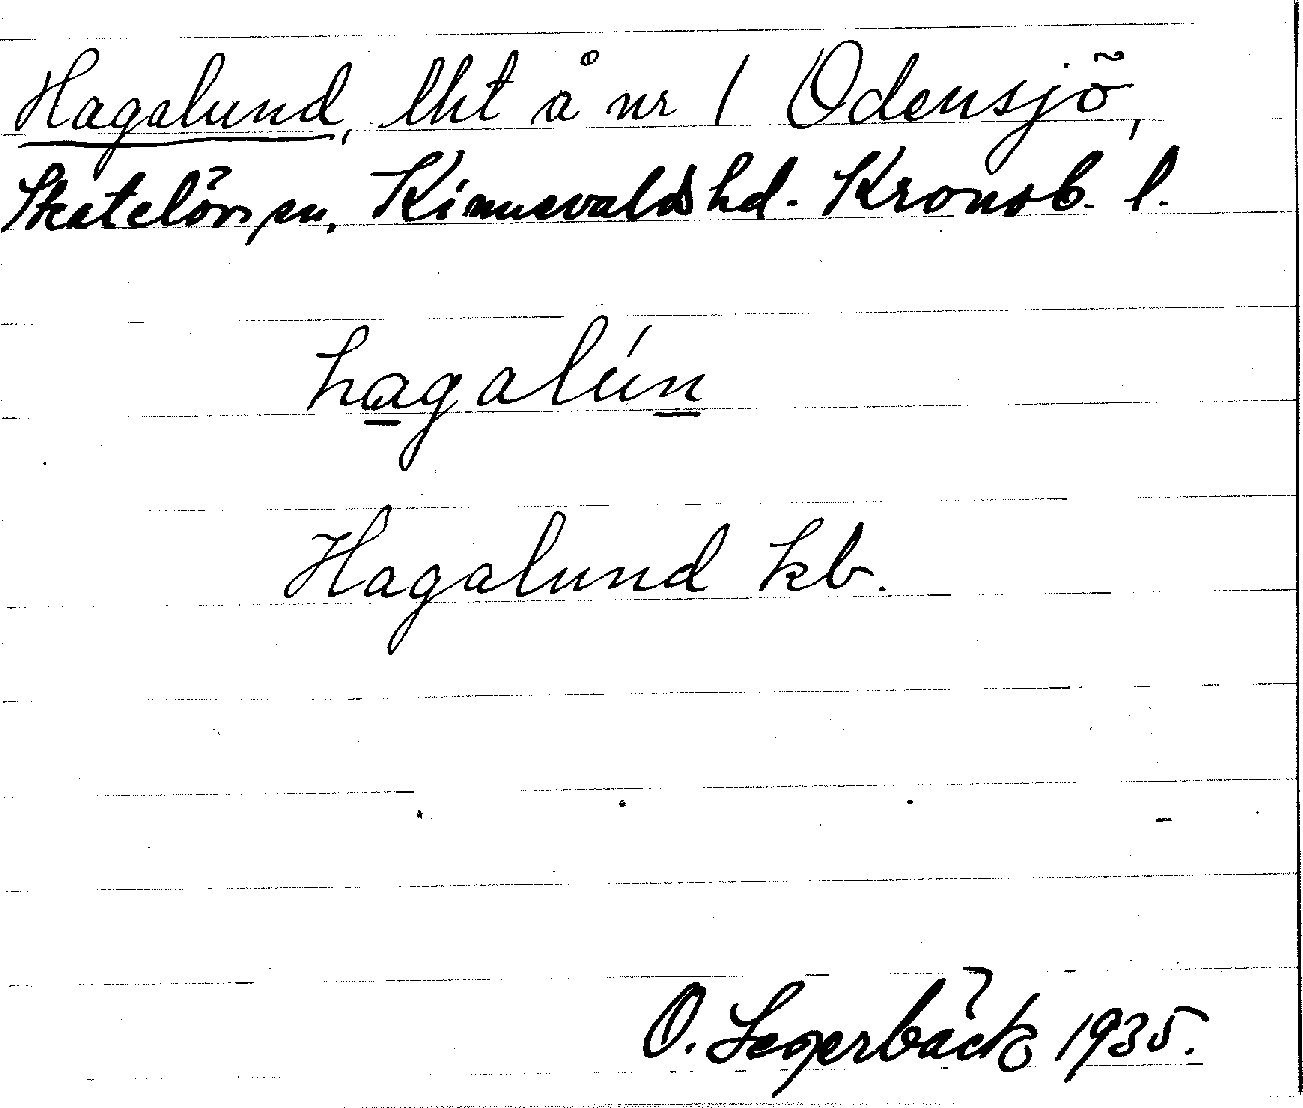 Hagalund, lht å nr 1 Odensjö,
Skatelövs sn, Kinnevalds hd. Kronob. l.
hagalún
Hagalund kb.
O. Segerbäck 1935.